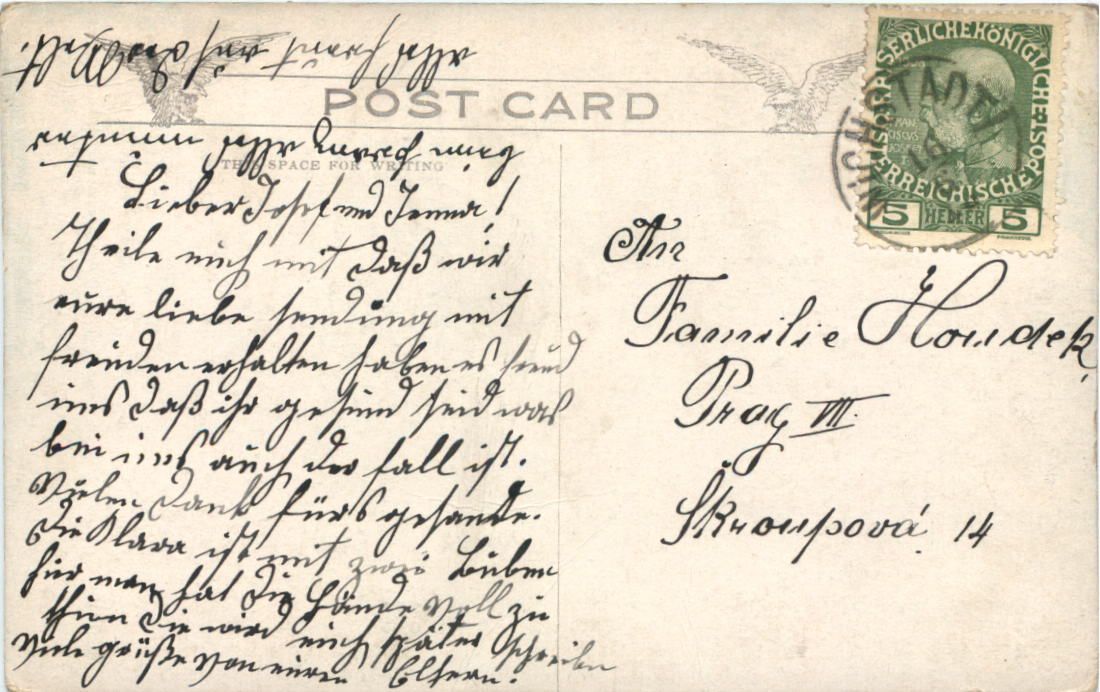 POST CARD
THE SPACE FOR WRITING
Lieber Josef und Jenna!
Theile euch mit daß wir
eure liebe sendung mit
freuden erhalten haben es freud
uns daß ihr gesund seid was
bei uns auch der fall ist.
Vielen Dank fürs gesante.
Die Klara ist mit zwei Buben
hier man hat die Hände voll zu
thun Sie wird euch später schreiben
Viele grüße von euren Eltern.
An
Familie Houdek
Prag VII.
Škroupová 14
KAISERLICHE KÖNIGLICHE
ÖSTERREICHISCHE POST
5 HELLER 5